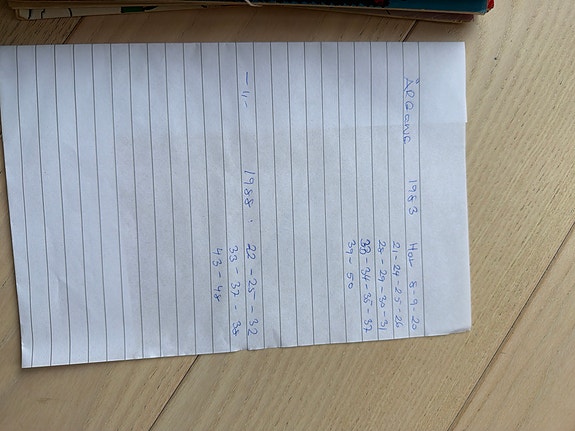 ÅRGANG 1983 Har 8-9-20
21-24-25-26
28-29-30-31
33-34-35-37
39-50
-〃- 1988: 22-25-32
33-37-38
43-48